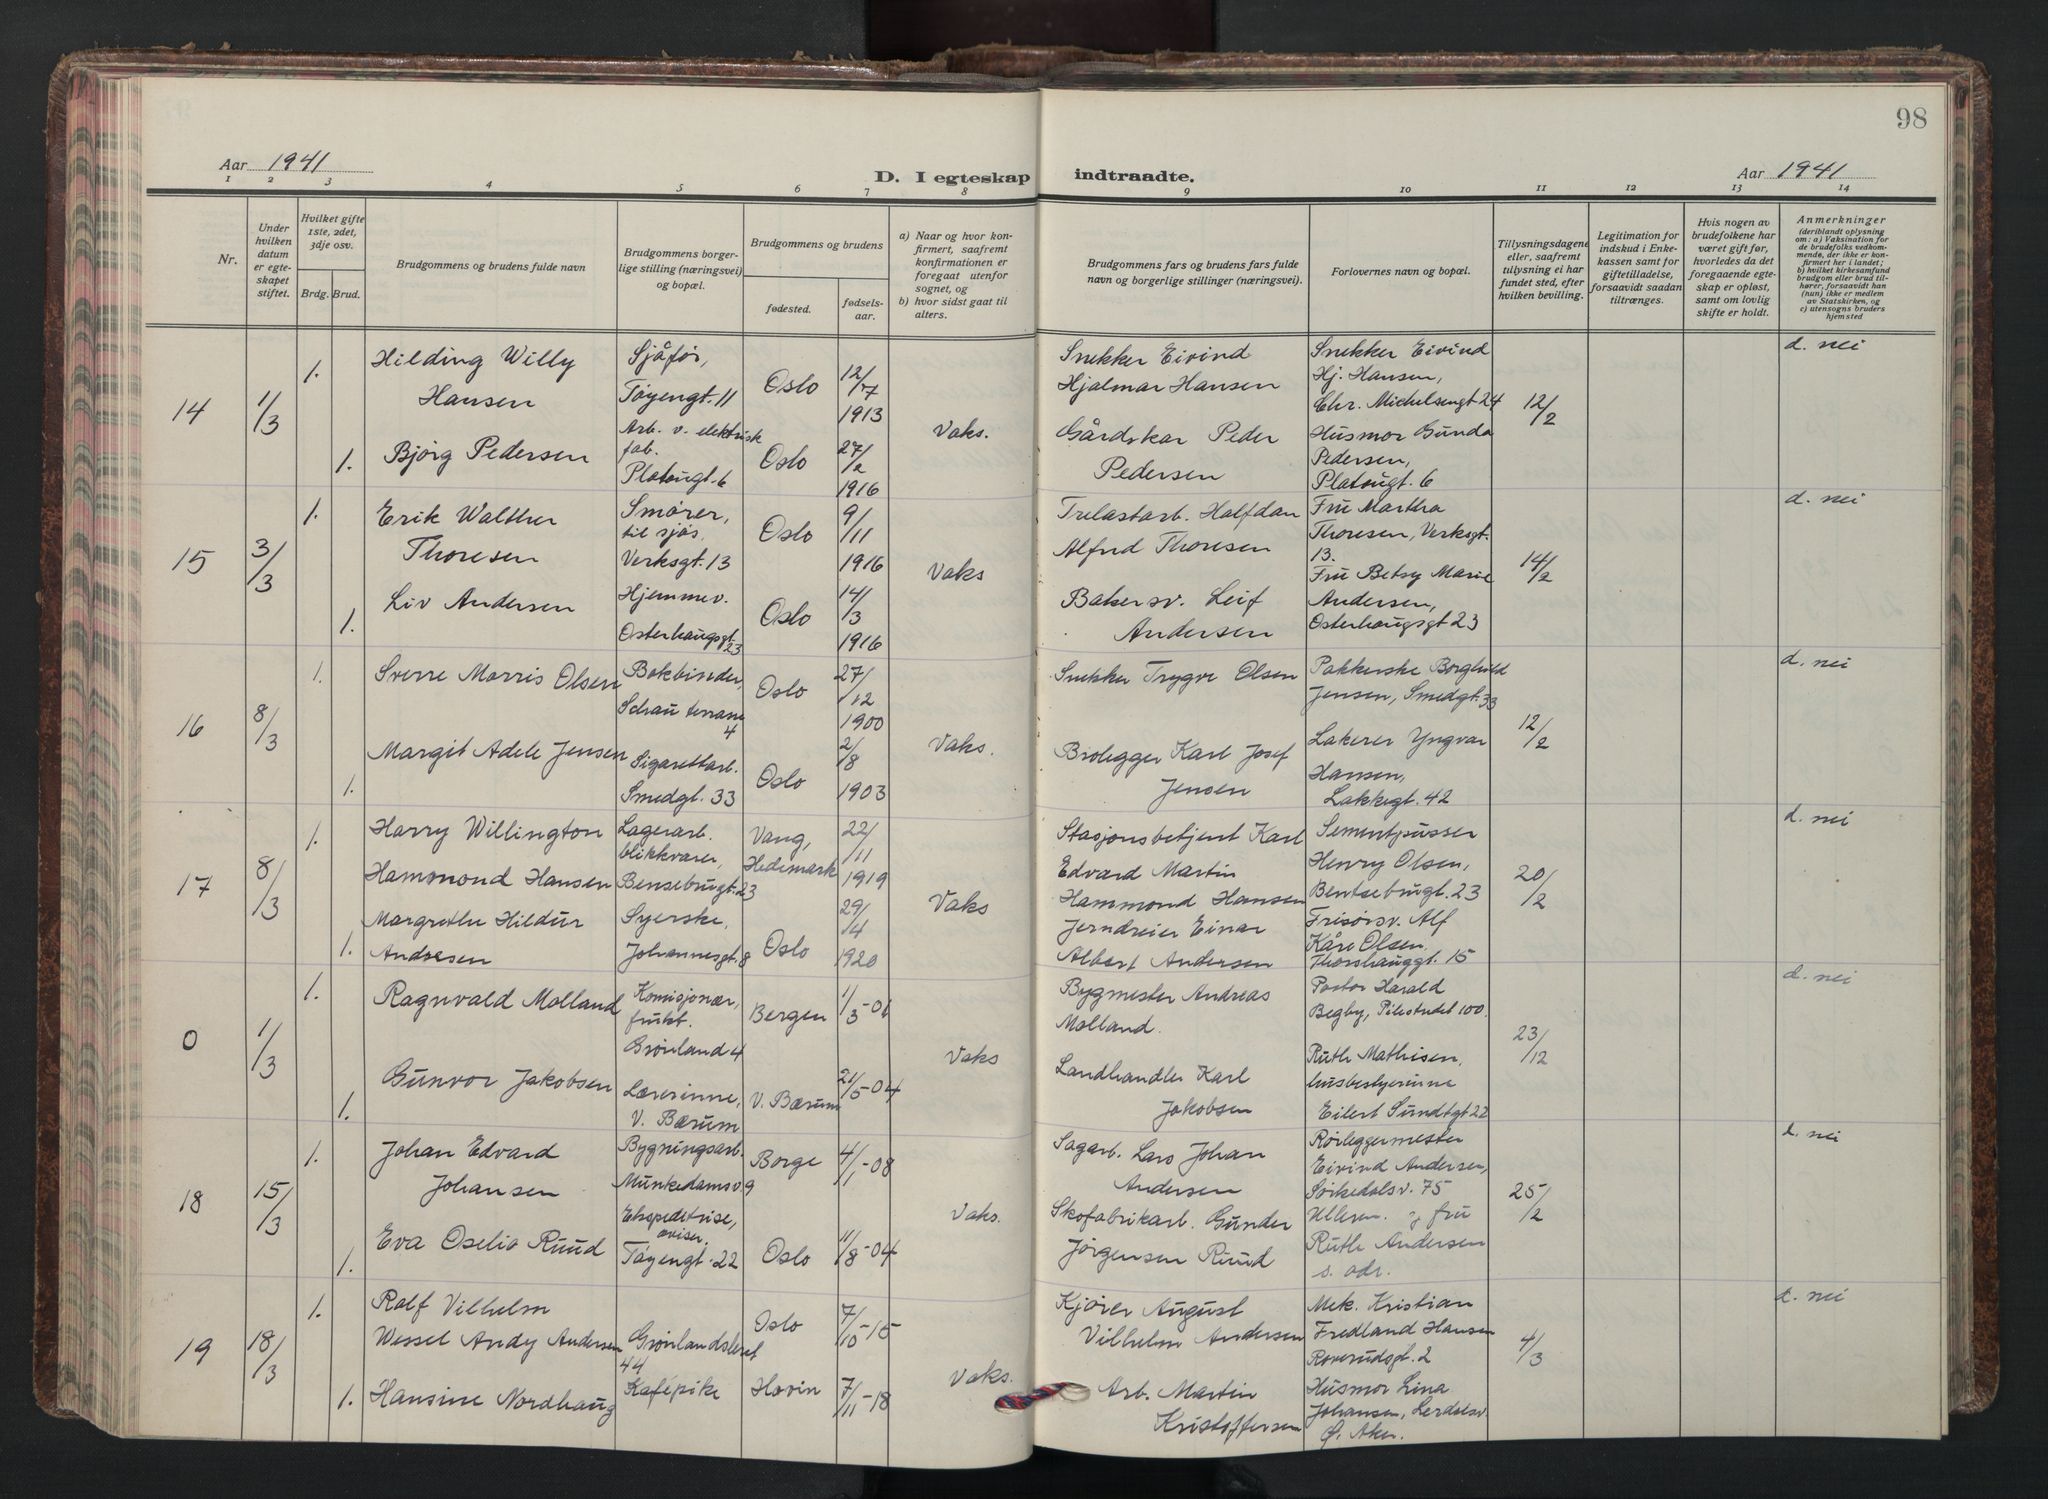 98
Aar 1941
D. I egteskap indtraadte.
Aar 1941
1 2 3 4 5 6 7 8 9 10 11 12 13 14
Nr.
Under hvilken datum er egteskapet stiftet.
Hvilket gifte 1ste, 2det, 3dje osv.
Brdg. Brud.
Brudgommens og brudens fulde navn
Brudgommens borgerlige stilling (næringsvei) og bopæl.
Brudgommens og brudens
fødested.
fødselsaar.
a) Naar og hvor konfirmert, saafremt konfirmationen er foregaat utenfor sognet, og
b) hvor sidst gaat til alters.
Brudgommens fars og brudens fars fulde navn og borgerlige stillinger (næringsvei).
Forlovernes navn og bopæl.
Tillysningsdagene eller, saafremt tillysning ei har fundet sted, efter hvilken bevilling.
Legitimation for indskud i Enkekassen samt for giftetilladelse, forsaavidt saadan tiltrænges.
Hvis nogen av brudefolkene har været gift før, hvorledes da det foregaaende egteskap er opløst, samt om lovlig skifte er holdt.
Anmerkninger
(deriblandt oplysning om: a) Vaksination for de brudefolks vedkommende, der ikke er konfirmert her i landet; b) hvilket kirkesamfund brudgom eller brud tilhører, forsaavidt han (hun) ikke er medlem av Statskirken, og c) utensogns bruders hjemsted
14
1/3
1.
Hilding Willy
Hansen
Sjåfør,
Tøyengt. 11
Oslo
12/7
1913
Vaks.
Snekker Eivind
Hjalmar Hansen
Snekker Eivind
Hj. Hansen,
Chr. Michelsengt 24
12/2
d. nei
1.
Bjørg Pedersen
Arb. v. elektrisk
fab.
Platougt. 6
Oslo
27/2
1916
Gårdskar Peder
Pedersen
Husmor Gunda
Pedersen,
Platougt. 6
15
3/3
1.
Erik Walther
Thoresen
Smører,
til sjøs.
Verksgt. 13
Oslo
9/11
1916
Vaks
Trelastarb. Halfdan
Alfred Thoresen
Fru Martha
Thoresen, Verksgt.
13.
14/2
d. nei
1.
Liv Andersen
Hjemmev.
Osterhaugsgt.
23
Oslo
14/3
1916
Bakersv. Leif
Andersen
Fru Betsy Marie
Andersen,
Osterhaugsgt 23
16
8/3
1.
Sverre Morris Olsen
Bokbinder,
Schau terrasse
4
Oslo
27/12
1900
Vaks.
Snekker Trygve Olsen
Pakkerske Borghild
Jensen, Smedgt. 33
12/2
d. nei
1.
Margit Adele Jensen
Sigarettarb.
Smedgt. 33
Oslo
2/8
1903
Brolegger Karl Josef
Jensen
Lakerer Yngvar
Hansen,
Lakkegt. 42
17
8/3
1.
Harry Willington
Hammond Hansen
Lagerarb.
blikkvarer,
Bensebrugt. 23
Vang,
Hedemark
22/11
1919
Vaks
Stasjonsbetjent Karl
Edvard Martin
Hammond Hansen
Sementpusser
Henry Olsen,
Bentsebrugt. 23
20/2
d. nei
1.
Margrethe Hildur
Andersen
Syerske,
Johannesgt. 8
Oslo
29/4
1920
Jerndreier Einar
Albert Andersen
Frisørsv. Alf
Kåre Olsen.
Thorshauggt. 15
0
1/3
1.
Ragnvald Molland
Komisjonær,
frukt.
Grønland 4
Bergen
1/3-01
Vaks
Bygmester Andreas
Molland.
Pastor Harald
Begby, Pilestredet 100.
23/12
d. nei
1.
Gunvor Jakobsen
Lærerinne,
V. Bærum
V. Bærum
21/5-04
Landhandler Karl
Jakobsen
Ruth Mathisen,
husbestyrerinne
Eilert Sundtgt 22
18
15/3
1.
Johan Edvard
Johansen
Bygningsarb.
Munkedamsv. 9
Borge
4/1-08
Vaks.
Sagarb. Lars Johan
Andersen
Rørleggermester
Eivind Andersen,
Sørkedalsv. 75
25/2
d. nei
1.
Eva Oselio Ruud
Ekspeditrise,
aviser.
Tøyengt. 22
Oslo
11/8-04
Skofabrikarb. Gunder
Jørgensen Ruud
Ulleren. og fru
Ruth Andersen
s. adr.
19
18/3
1.
Rolf Vilhelm
Wessel Andy Andersen
Grønlandsleret
44
Oslo
7/10-15
Vaks.
Kjører August
Vilhelm Andersen
Mek. Kristian
Fredland Hansen
Roverudsgt. 2
4/3
d. nei
1.
Hansine Nordhaug
Kafépike
Hovin
7/11-18
Arb. Martin
Kristoffersen
Husmor Lina
Johansen, Lerdalsv.
Ø. Aker.